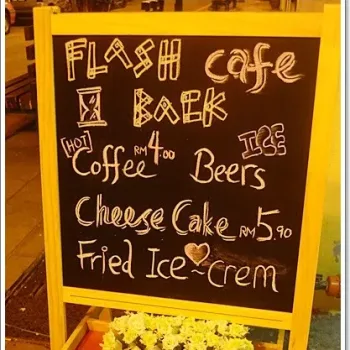 FLASH cafe
BACK
[HOT] ICE
Coffee RM 4.00 Beers
Cheese Cake RM 5.90
Fried Ice~Crem